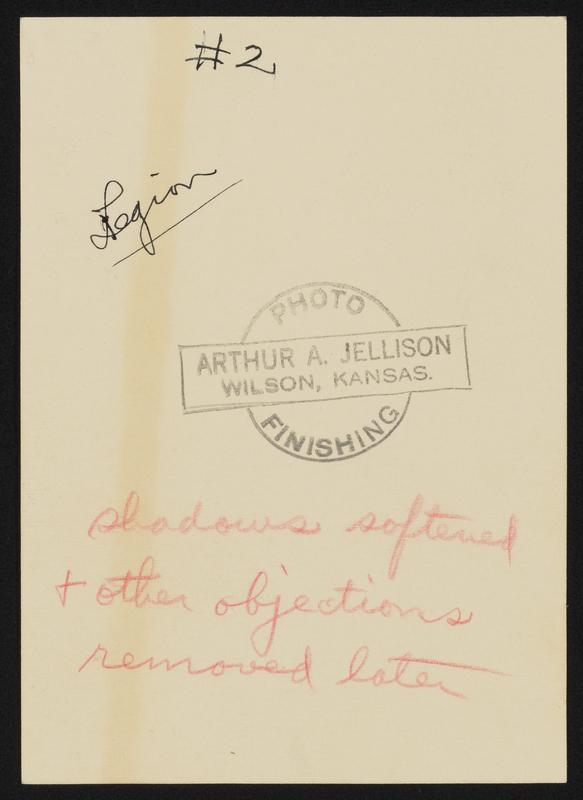 #2
Legion
PHOTO
ARTHUR A. JELLISON
WILSON, KANSAS.
FINISHING
shadows softened
+ other objections
removed later